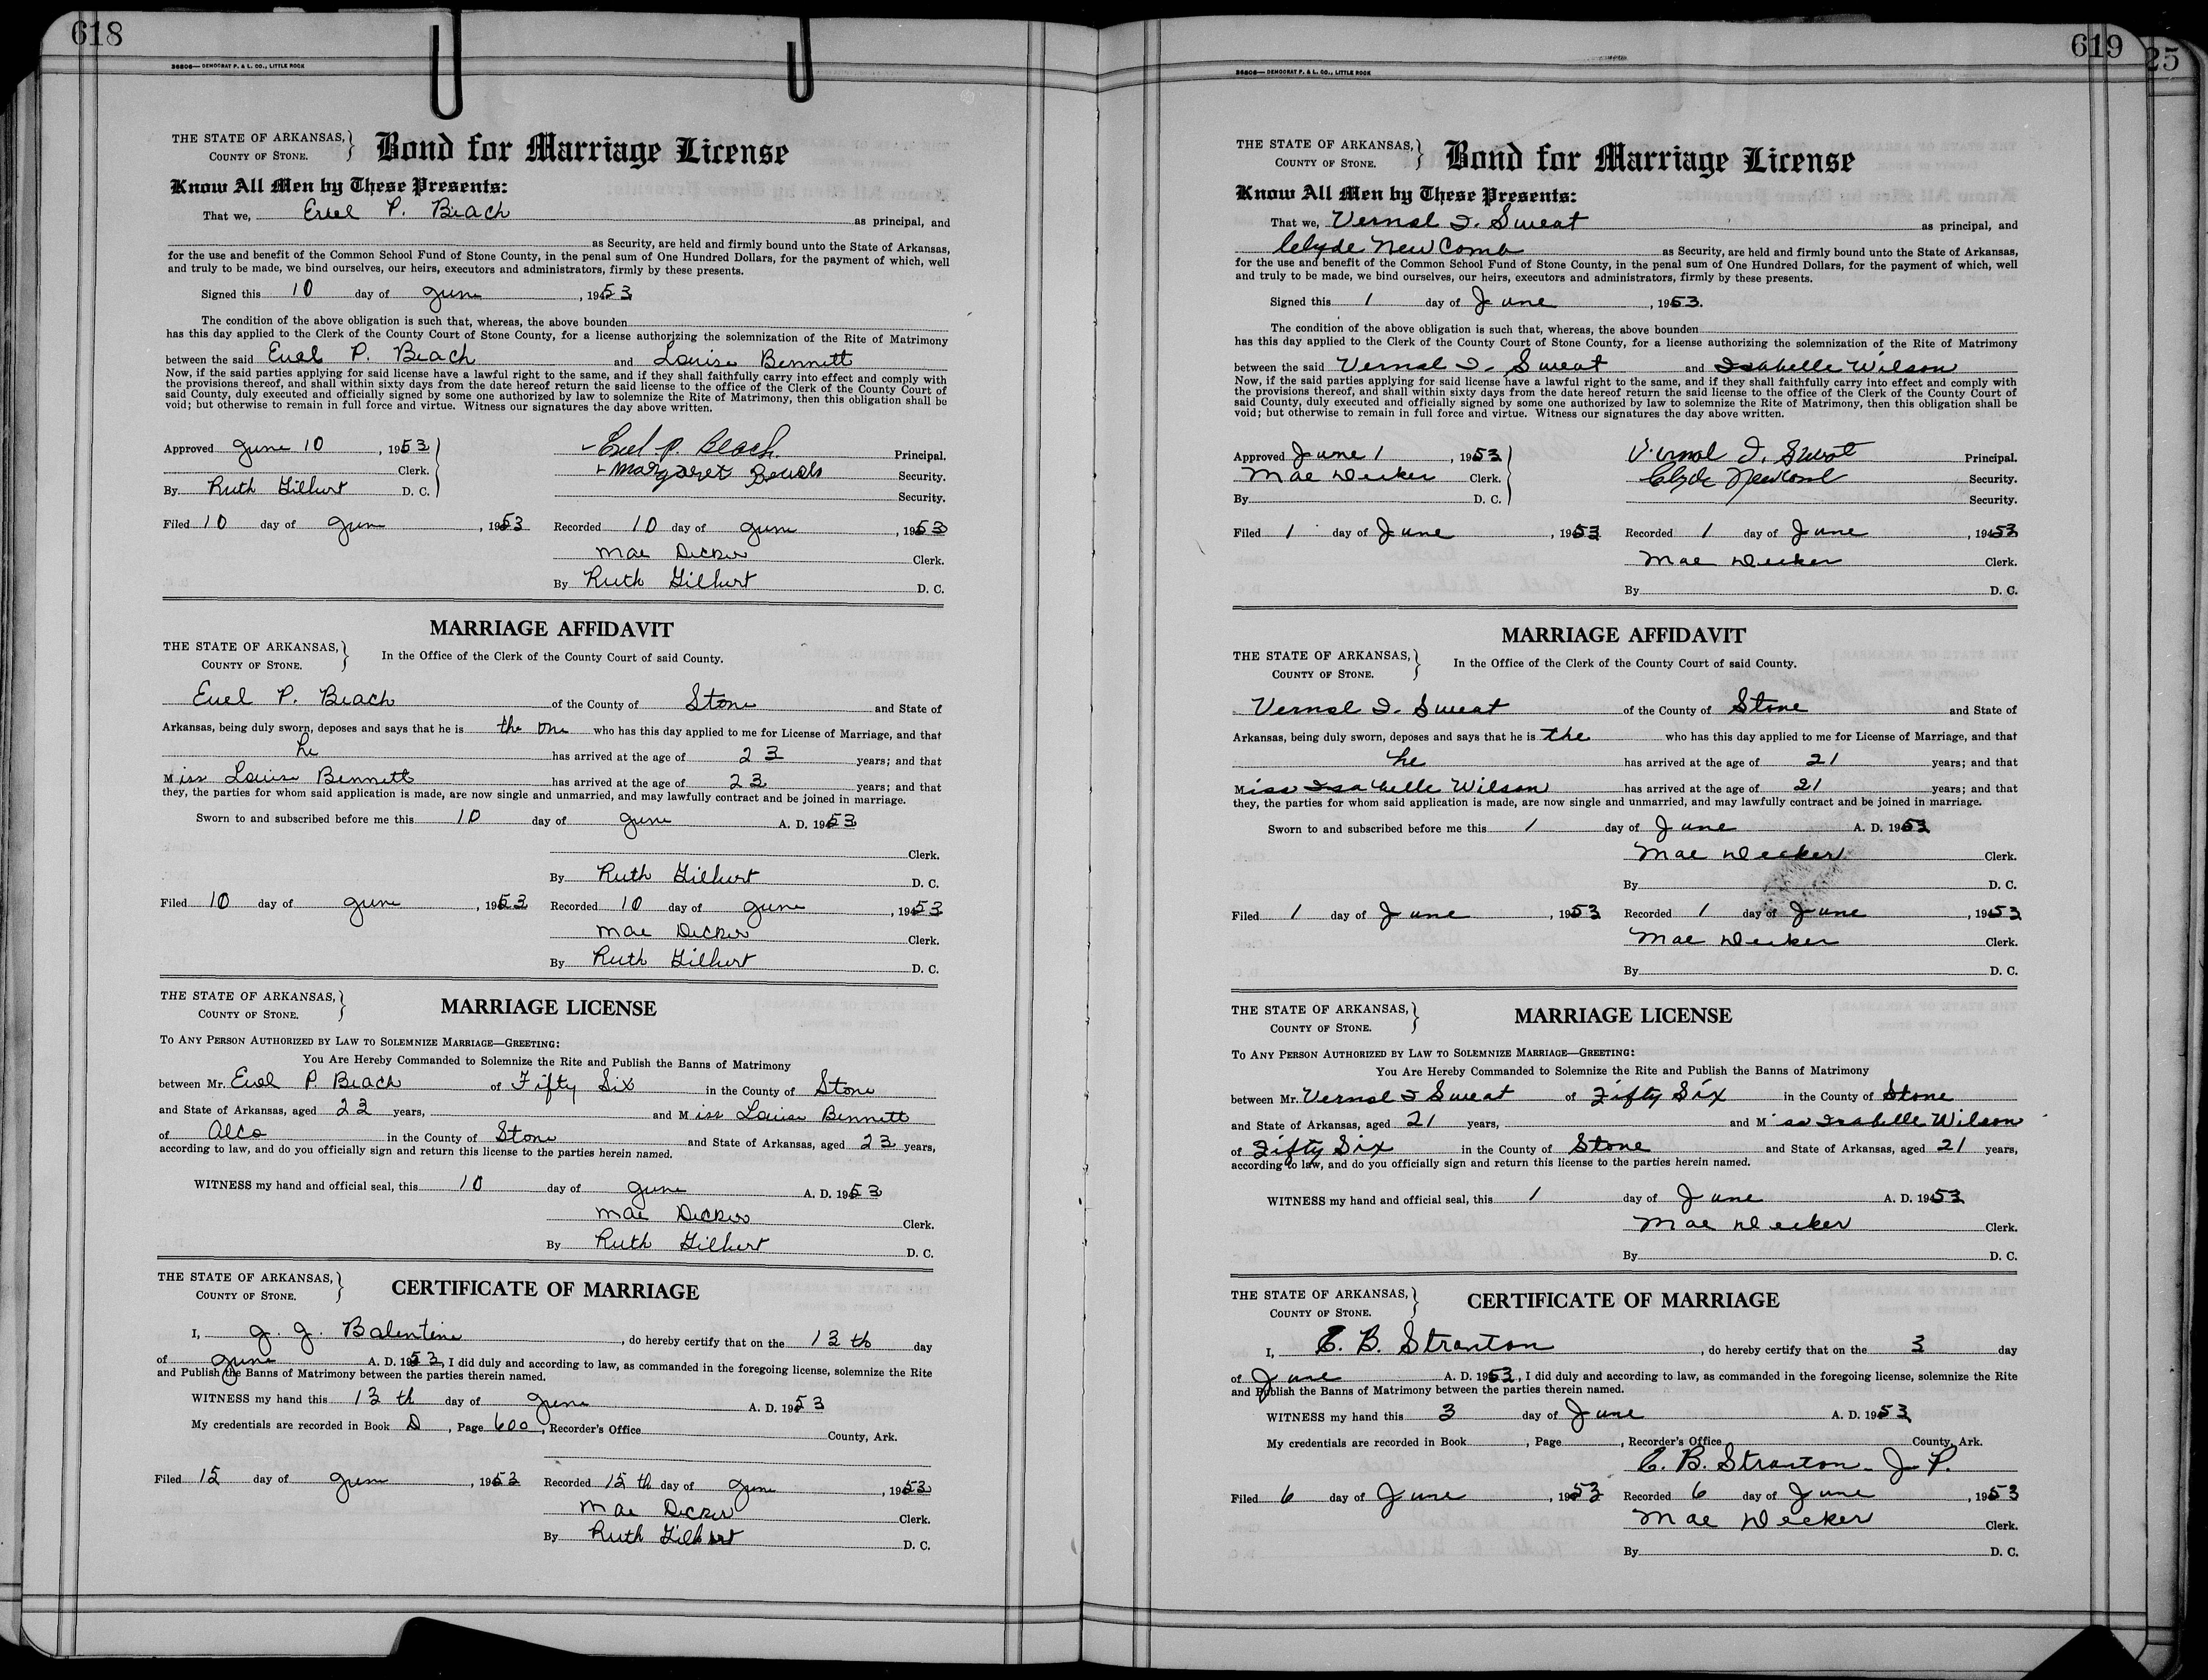 618
36806— DEMOCRAT P. & L. CO., LITTLE ROCK
THE STATE OF ARKANSAS,
COUNTY OF STONE.
Bond for Marriage License
Know All Men by These Presents:
That we, Euel P. Beach as principal, and
as Security, are held and firmly bound unto the State of Arkansas,
for the use and benefit of the Common School Fund of Stone County, in the penal sum of One Hundred Dollars, for the payment of which, well
and truly to be made, we bind ourselves, our heirs, executors and administrators, firmly by these presents.
Signed this 10 day of June, 1953
The condition of the above obligation is such that, whereas, the above bounden
has this day applied to the Clerk of the County Court of Stone County, for a license authorizing the solemnization of the Rite of Matrimony
between the said Euel P. Beach and Louise Bennett
Now, if the said parties applying for said license have a lawful right to the same, and if they shall faithfully carry into effect and comply with
the provisions thereof, and shall within sixty days from the date hereof return the said license to the office of the Clerk of the County Court of
said County, duly executed and officially signed by some one authorized by law to solemnize the Rite of Matrimony, then this obligation shall be
void; but otherwise to remain in full force and virtue. Witness our signatures the day above written.
Approved June 10, 1953
Clerk.
By Ruth Gilbert D. C.
Euel P. Beach Principal.
Margaret Security.
Security.
Filed 10 day of June, 1953 Recorded 10 day of June, 1953
Mae Decker Clerk.
By Ruth Gilbert D. C.
MARRIAGE AFFIDAVIT
THE STATE OF ARKANSAS,
COUNTY OF STONE.
In the Office of the Clerk of the County Court of said County.
Euel P. Beach of the County of Stone and State of
Arkansas, being duly sworn, deposes and says that he is the one who has this day applied to me for License of Marriage, and that
he has arrived at the age of 23 years; and that
Miss Louise Bennett has arrived at the age of 23 years; and that
they, the parties for whom said application is made, are now single and unmarried, and may lawfully contract and be joined in marriage.
Sworn to and subscribed before me this 10 day of June A. D. 1953
Clerk.
By Ruth Gilbert D. C.
Filed 10 day of June, 1953 Recorded 10 day of June, 1953
Mae Decker Clerk.
By Ruth Gilbert D. C.
THE STATE OF ARKANSAS,
COUNTY OF STONE.
MARRIAGE LICENSE
TO ANY PERSON AUTHORIZED BY LAW TO SOLEMNIZE MARRIAGE—GREETING:
You Are Hereby Commanded to Solemnize the Rite and Publish the Banns of Matrimony
between Mr. Euel P. Beach of Fifty Six in the County of Stone
and State of Arkansas, aged 23 years, and Miss Louise Bennett
of Alco in the County of Stone and State of Arkansas, aged 23 years,
according to law, and do you officially sign and return this license to the parties herein named.
WITNESS my hand and official seal, this 10 day of June A. D. 1953
Mae Decker Clerk.
By Ruth Gilbert D. C.
THE STATE OF ARKANSAS,
COUNTY OF STONE.
CERTIFICATE OF MARRIAGE
I, J. J. Balentine, do hereby certify that on the 13th day
of June A. D. 1953, I did duly and according to law, as commanded in the foregoing license, solemnize the Rite
and Publish the Banns of Matrimony between the parties therein named.
WITNESS my hand this 13th day of June A. D. 1953
My credentials are recorded in Book D, Page 600, Recorder's Office County, Ark.
Filed 15 day of June, 1953 Recorded 15th day of June, 1953
Mae Decker Clerk.
By Ruth Gilbert D. C.
619
25
36806— DEMOCRAT P. & L. CO., LITTLE ROCK
THE STATE OF ARKANSAS,
COUNTY OF STONE.
Bond for Marriage License
Know All Men by These Presents:
That we, Vernal I. Sweat as principal, and
Clyde NewComb as Security, are held and firmly bound unto the State of Arkansas,
for the use and benefit of the Common School Fund of Stone County, in the penal sum of One Hundred Dollars, for the payment of which, well
and truly to be made, we bind ourselves, our heirs, executors and administrators, firmly by these presents.
Signed this 1 day of June, 1953.
The condition of the above obligation is such that, whereas, the above bounden
has this day applied to the Clerk of the County Court of Stone County, for a license authorizing the solemnization of the Rite of Matrimony
between the said Vernal I. Sweat and Isabelle Wilson
Now, if the said parties applying for said license have a lawful right to the same, and if they shall faithfully carry into effect and comply with
the provisions thereof, and shall within sixty days from the date hereof return the said license to the office of the Clerk of the County Court of
said County, duly executed and officially signed by some one authorized by law to solemnize the Rite of Matrimony, then this obligation shall be
void; but otherwise to remain in full force and virtue. Witness our signatures the day above written.
Approved June 1, 1953
Mae Decker Clerk.
By D. C.
Vernal I. Sweat Principal.
Clyde Newcomb Security.
Security.
Filed 1 day of June, 1953 Recorded 1 day of June, 1953
Mae Decker Clerk.
By D. C.
MARRIAGE AFFIDAVIT
THE STATE OF ARKANSAS,
COUNTY OF STONE.
In the Office of the Clerk of the County Court of said County.
Vernal I. Sweat of the County of Stone and State of
Arkansas, being duly sworn, deposes and says that he is the who has this day applied to me for License of Marriage, and that
he has arrived at the age of 21 years; and that
Miss Isabelle Wilson has arrived at the age of 21 years; and that
they, the parties for whom said application is made, are now single and unmarried, and may lawfully contract and be joined in marriage.
Sworn to and subscribed before me this 1 day of June A. D. 1953
Mae Decker Clerk.
By D. C.
Filed 1 day of June, 1953 Recorded 1 day of June, 1953
Mae Decker Clerk.
By D. C.
THE STATE OF ARKANSAS,
COUNTY OF STONE.
MARRIAGE LICENSE
TO ANY PERSON AUTHORIZED BY LAW TO SOLEMNIZE MARRIAGE—GREETING:
You Are Hereby Commanded to Solemnize the Rite and Publish the Banns of Matrimony
between Mr. Vernal I Sweat of Fifty Six in the County of Stone
and State of Arkansas, aged 21 years, and Miss Isabelle Wilson
of Fifty Six in the County of Stone and State of Arkansas, aged 21 years,
according to law, and do you officially sign and return this license to the parties herein named.
WITNESS my hand and official seal, this 1 day of June A. D. 1953
Mae Decker Clerk.
By D. C.
THE STATE OF ARKANSAS,
COUNTY OF STONE.
CERTIFICATE OF MARRIAGE
I, C. B. Straxton, do hereby certify that on the 3 day
of June A. D. 1953, I did duly and according to law, as commanded in the foregoing license, solemnize the Rite
and Publish the Banns of Matrimony between the parties therein named.
WITNESS my hand this 3 day of June A. D. 1953
My credentials are recorded in Book , Page , Recorder's Office County, Ark.
C. B. Straxton - J. P.
Filed 6 day of June, 1953 Recorded 6 day of June, 1953
Mae Decker Clerk.
By D. C.